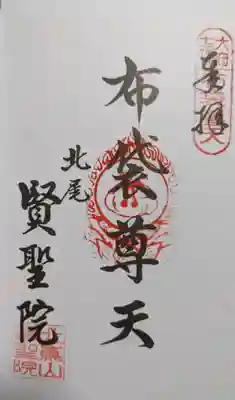 奉拝
布袋尊天
北尾
賢聖院